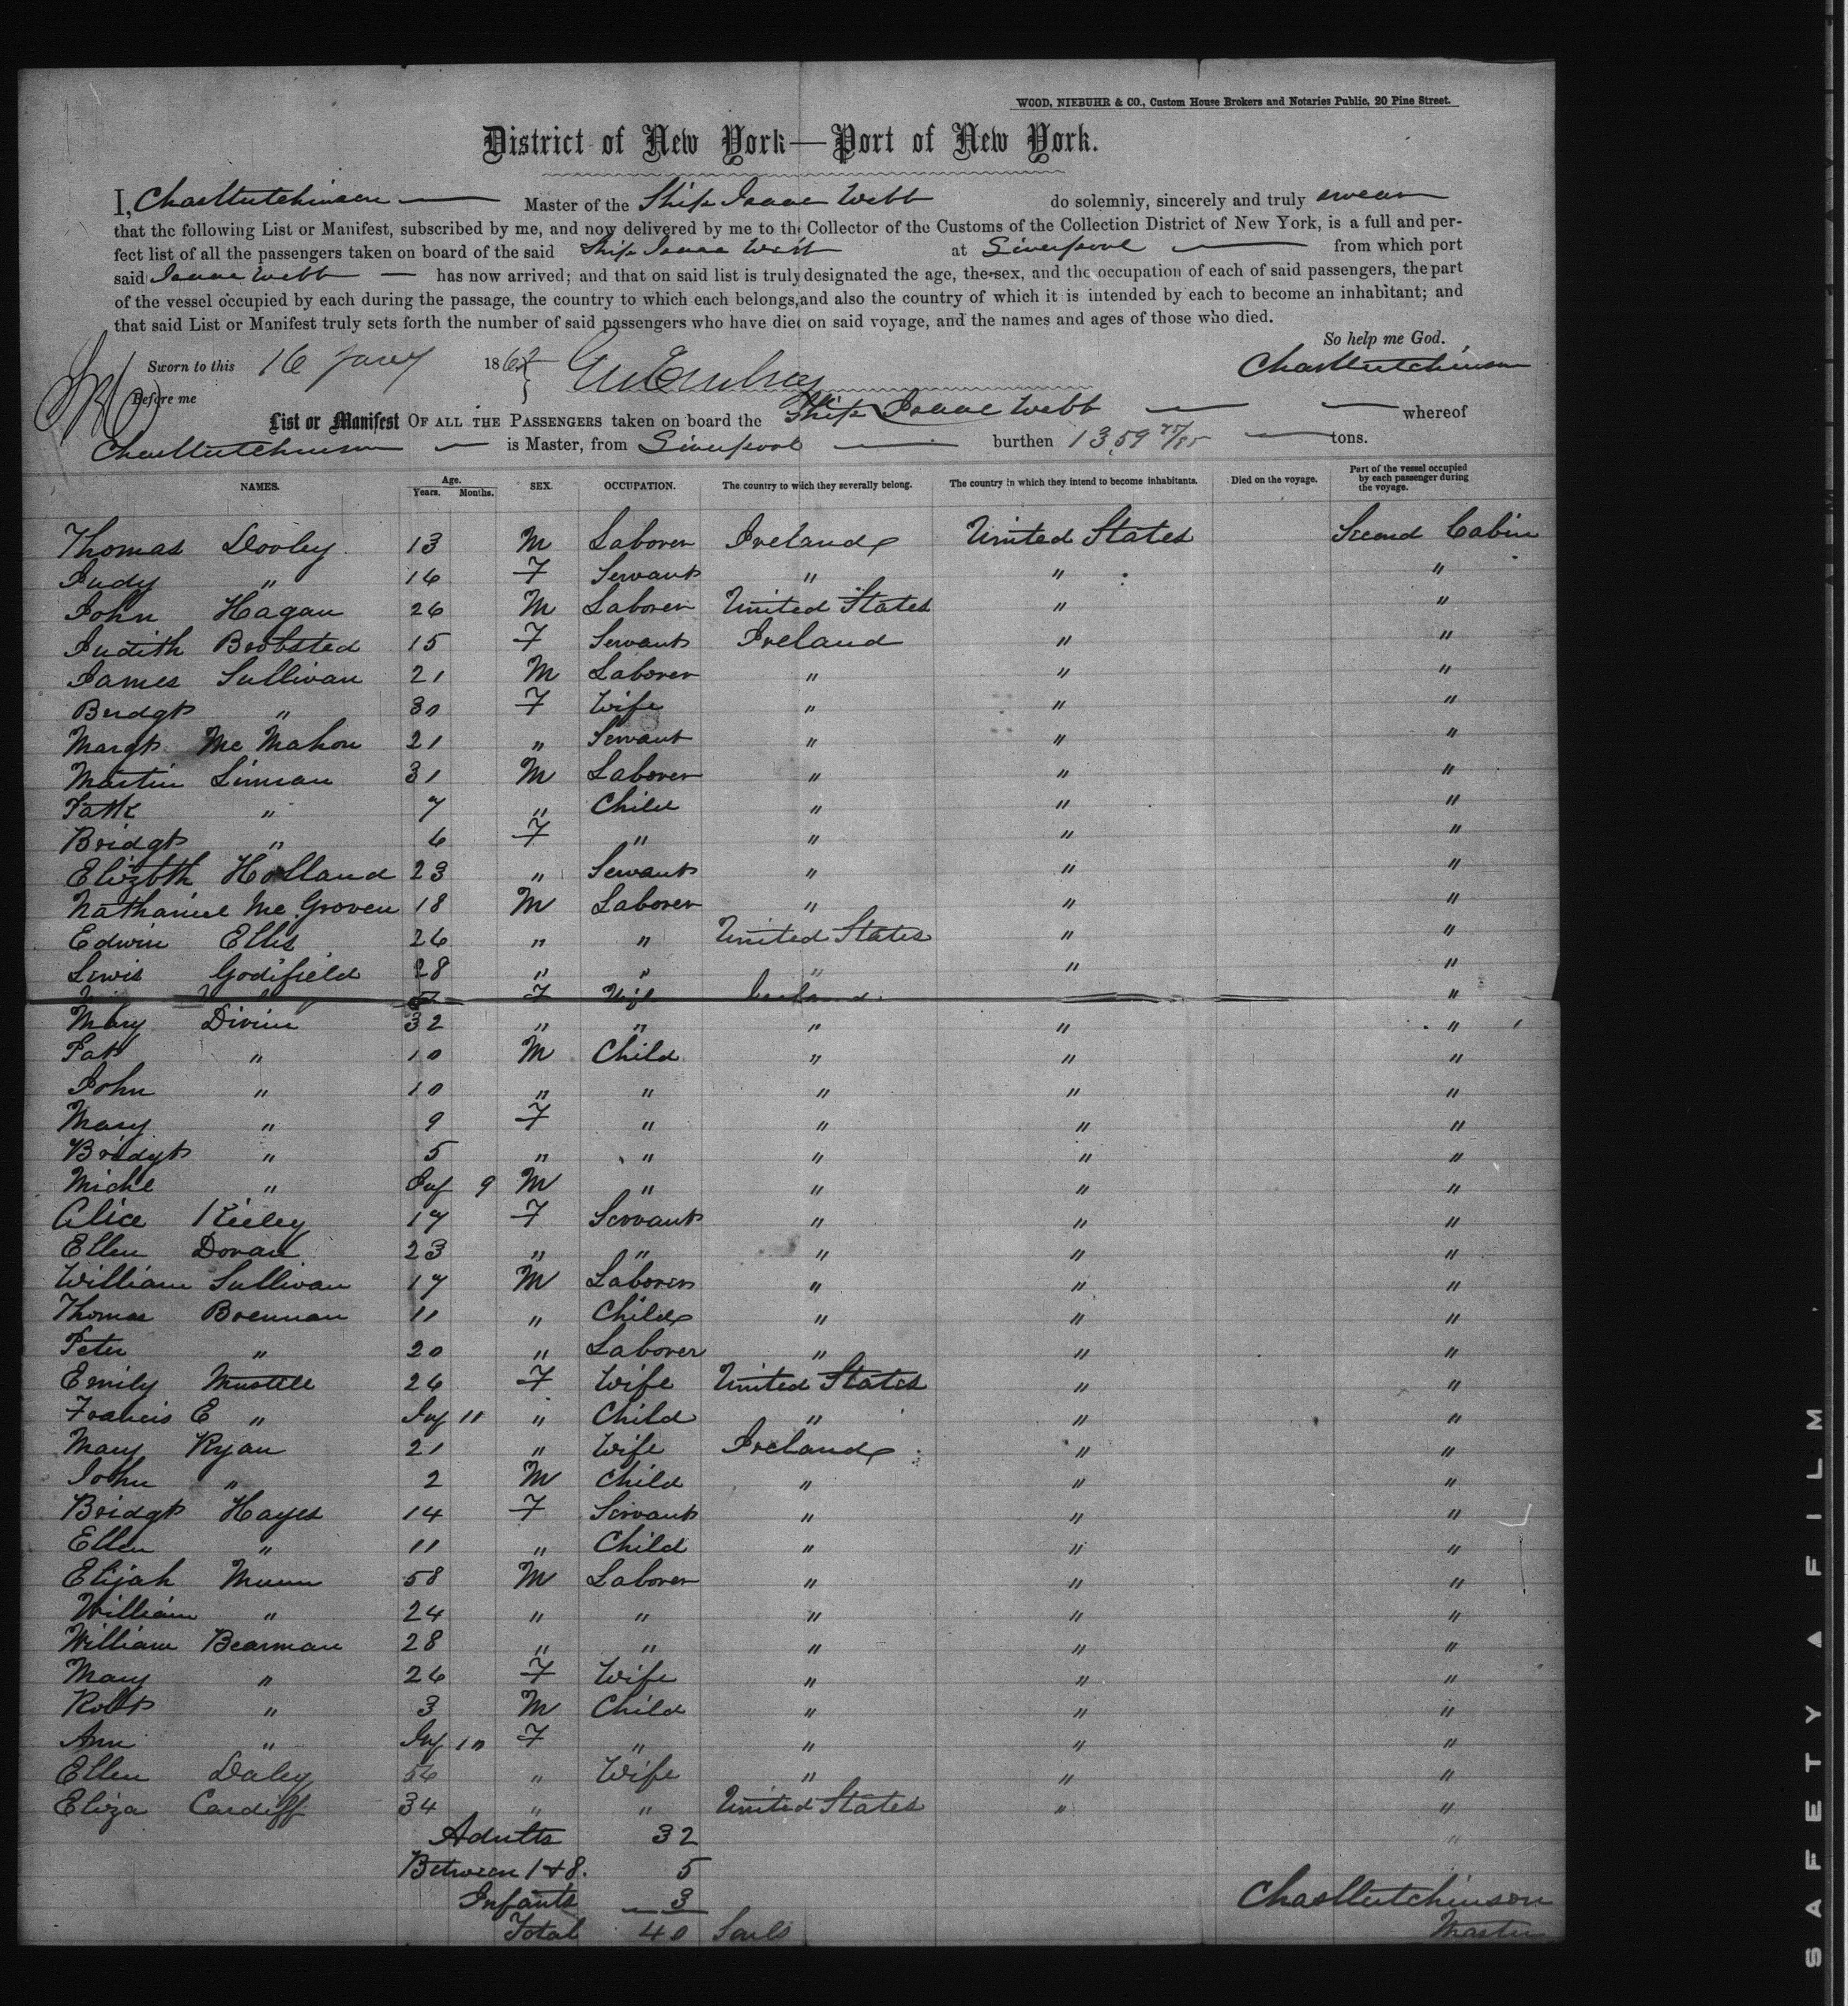 WOOD, NIEBUHR & CO., Custom House Brokers and Notaries Public, 20 Pine Street.
District of New York—Port of New York.
I, Chas Hutchinson Master of the Ship Isaac Webb do solemnly, sincerely and truly swear
that the following List or Manifest, subscribed by me, and now delivered by me to the Collector of the Customs of the Collection District of New York, is a full and per-
fect list of all the passengers taken on board of the said Ship Isaac Webb at Liverpool from which port
said Isaac Webb has now arrived; and that on said list is truly designated the age, the sex, and the occupation of each of said passengers, the part
of the vessel occupied by each during the passage, the country to which each belongs, and also the country of which it is intended by each to become an inhabitant; and
that said List or Manifest truly sets forth the number of said passengers who have died on said voyage, and the names and ages of those who died.
So help me God.
Sworn to this 16 Jany 1862 Chas Hutchinson
Before me
List or Manifest OF ALL THE PASSENGERS taken on board the Ship Isaac Webb whereof
Chas Hutchinson is Master, from Liverpool burthen 1359 75/95 tons.
NAMES. Age. Years. Months. SEX. OCCUPATION. The country to which they severally belong. The country in which they intend to become inhabitants. Died on the voyage. Part of the vessel occupied by each passenger during the voyage.
Thomas Dooley 13 M Laborer Ireland United States Second Cabin
Judy " 16 F Servant " " "
John Hagan 26 M Laborer United States " "
Judith Brobsted 15 F Servant Ireland " "
James Sullivan 21 M Laborer " " "
Bridgt " 30 F Wife " " "
Margt Mc Mahon 21 " Servant " " "
Martin Linnan 31 M Laborer " " "
Patk " 7 " Child " " "
Bridgt " 6 F " " " "
Elizbth Holland 23 " Servant " " "
Nathaniel Mc Groven 18 M Laborer " " "
Edwin Ellis 26 " " United States " "
Lewis Godifield 28 " " " " "
F "
Mary Divin 32 " " " " "
Pat " 10 M Child " " "
John " 10 " " " " "
Mary " 9 F " " " "
Bridgt " 5 " " " " "
Michl " Inf 9 M " " " "
Alice Kieley 17 F Servant " " "
Ellen Doran 23 " " " " "
William Sullivan 17 M Laborer " " "
Thomas Brennan 11 " Child " " "
Peter " 20 " Laborer " " "
Emily Mustell 26 F Wife United States " "
Francis E " Inf 11 " Child " " "
Mary Ryan 21 " Wife Ireland " "
John " 2 M Child " " "
Bridgt Hayes 14 F Servant " " "
Ellen " 11 " Child " " "
Elijah Munn 58 M Laborer " " "
William " 24 " " " " "
William Bearman 28 " " " " "
Mary " 26 F Wife " " "
Robt " 3 M Child " " "
Ann " Inf 10 F " " " "
Ellen Daley 56 " Wife " " "
Eliza Cardiff 34 " " United States " "
Adults 32 "
Between 1 & 8. 5
Infants 3 Chas Hutchinson
Total 40 Souls Master
SAFETY ▲ FILM